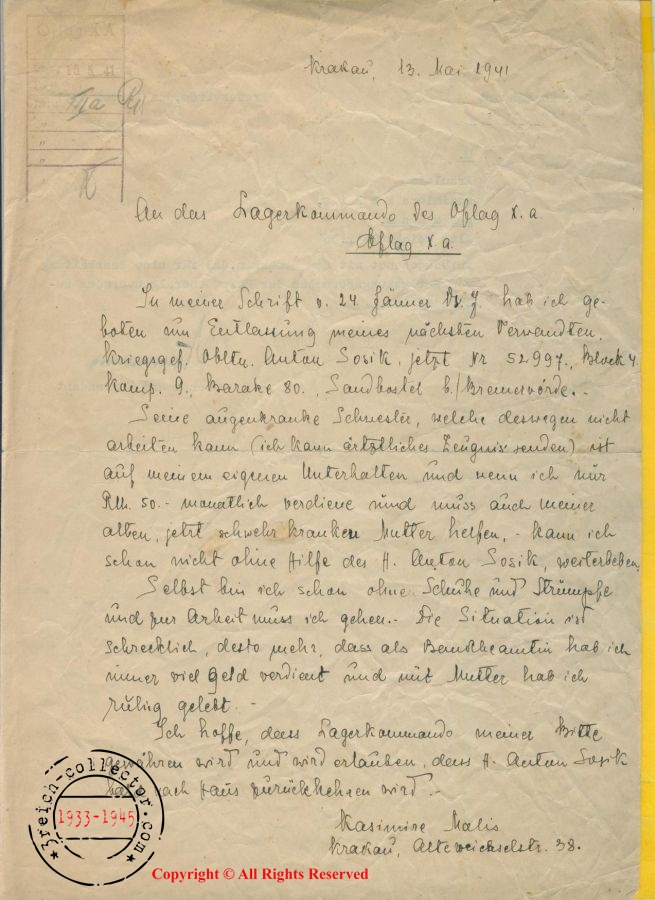 Krakau, 13. Mai 1941
IIa
An das Lagerkommando des Oflag X. a.
Oflag X. a.
In meiner Schrift v. 24. Jänner d. J. hab ich ge-
boten um Entlassung meines nächsten Verwandten,
Kriegsgef. Obltn. Anton Sosik, jetzt Nr 52997., Block 4.
Komp. 9., Barake 80., Sandbostel b./Bremervörde. -
Seine augenkranke Schwester, welche deswegen nicht
arbeiten kann (ich kann ärtztliches Zeugnis senden) ist
auf meinem eigenen Unterhalten und wenn ich nur
RM. 50.- monatlich verdiene und muss auch meiner
alten, jetzt schwehr kranken Mutter helfen, - kann ich
schon nicht ohne Hilfe des H. Anton Sosik, weiterleben.
Selbst bin ich schon ohne Schuhe und Strümpfe
und zur Arbeit muss ich gehen. - Die Situation ist
schrecklich, desto mehr, dass als Bankbeamtin hab ich
immer viel Geld verdient und mit Mutter hab ich
ruhig gelebt. -
Ich hoffe, dass Lagerkommando meiner Bitte
gewähren wird und wird erlauben, dass H. Anton Sosik
nach Haus zurückkehren wird. -
Kasimire Malis
Krakau, Alte Weichselstr. 38.
3reich-collector.com
1933-1945
Copyright © All Rights Reserved